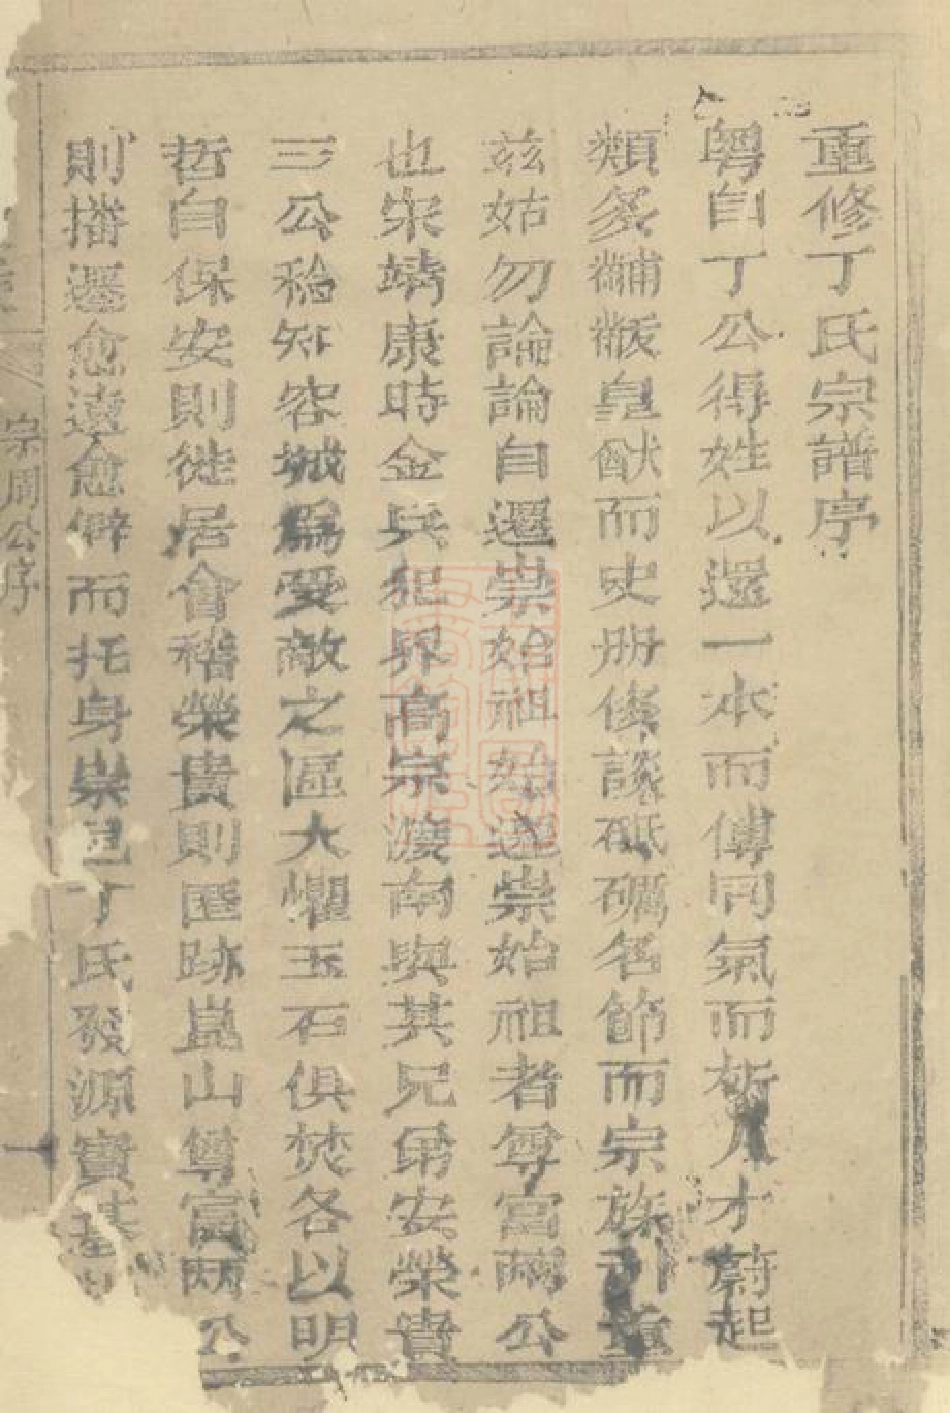 重修丁氏宗譜序
粤自丁公得姓以還一本而傳同氣而析人才蔚起
類多黼黻皇猷而史册倐談砥礪名節而宗族引重
茲姑勿論論自遷崇始祖始遷崇始祖者尊富兩公
也宋靖康時金兵犯界高宗渡南與其兄弟安榮貴
三公稔知容城爲受敵之區大懼玉石俱焚各以明
哲自保安則徙居會稽榮貴則匿跡崑山尊富兩公
則播遷愈遠愈僻而托身崇邑丁氏發源實基
宗周公序